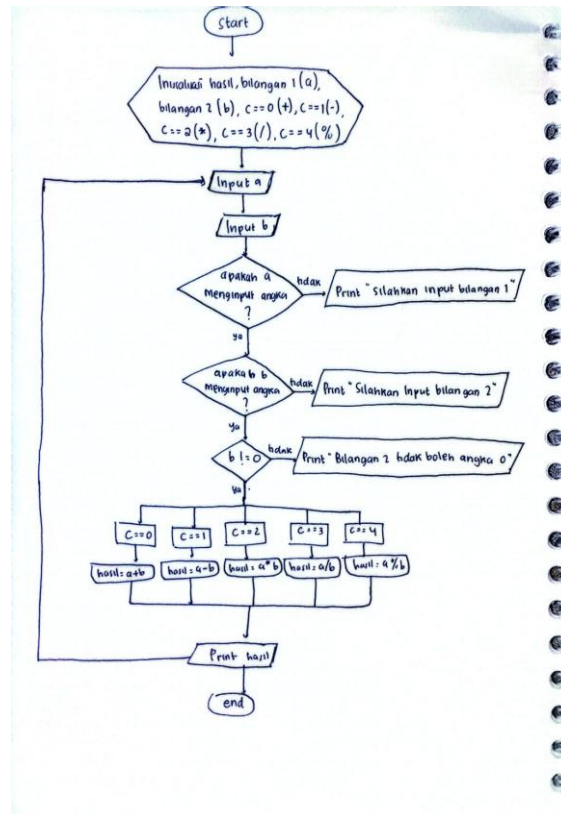 Start
Inisalisasi hasil, bilangan 1 (a),
bilangan 2 (b), C==0 (+), C==1 (-),
C==2 (*), C==3 (/), C==4 (%)
Input a
Input b
apakah a
menginput angka
?
tidak
Print "Silahkan input bilangan 1"
ya
apakah b
menginput angka
?
tidak
Print "Silahkan Input bilangan 2"
ya
b != 0
tidak
Print "Bilangan 2 tidak boleh angka 0"
ya
C==0 C==1 C==2 C==3 C==4
hasil = a+b hasil = a-b hasil = a*b hasil = a/b hasil = a%b
Print hasil
end